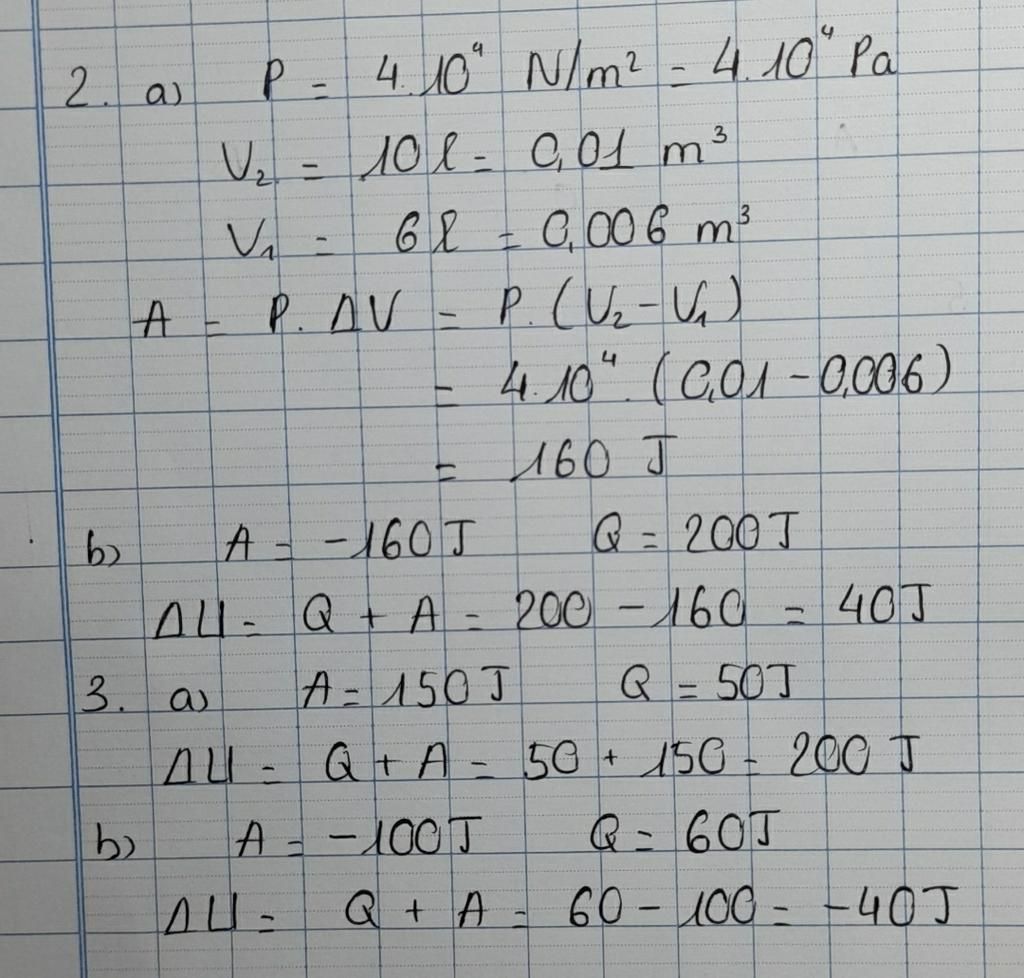 2. a) P = 4.10⁴ N/m² = 4.10⁴ Pa
V₂ = 10 l = 0,01 m³
V₁ = 6 l = 0,006 m³
A = P. ΔV = P. (V₂ - V₁)
= 4.10⁴. (0,01 - 0,006)
= 160 J
b) A = -160J Q = 200J
ΔU = Q + A = 200 - 160 = 40J
3. a) A = 150J Q = 50J
ΔU = Q + A = 50 + 150 = 200 J
b) A = -100J Q = 60J
ΔU = Q + A = 60 - 100 = -40J